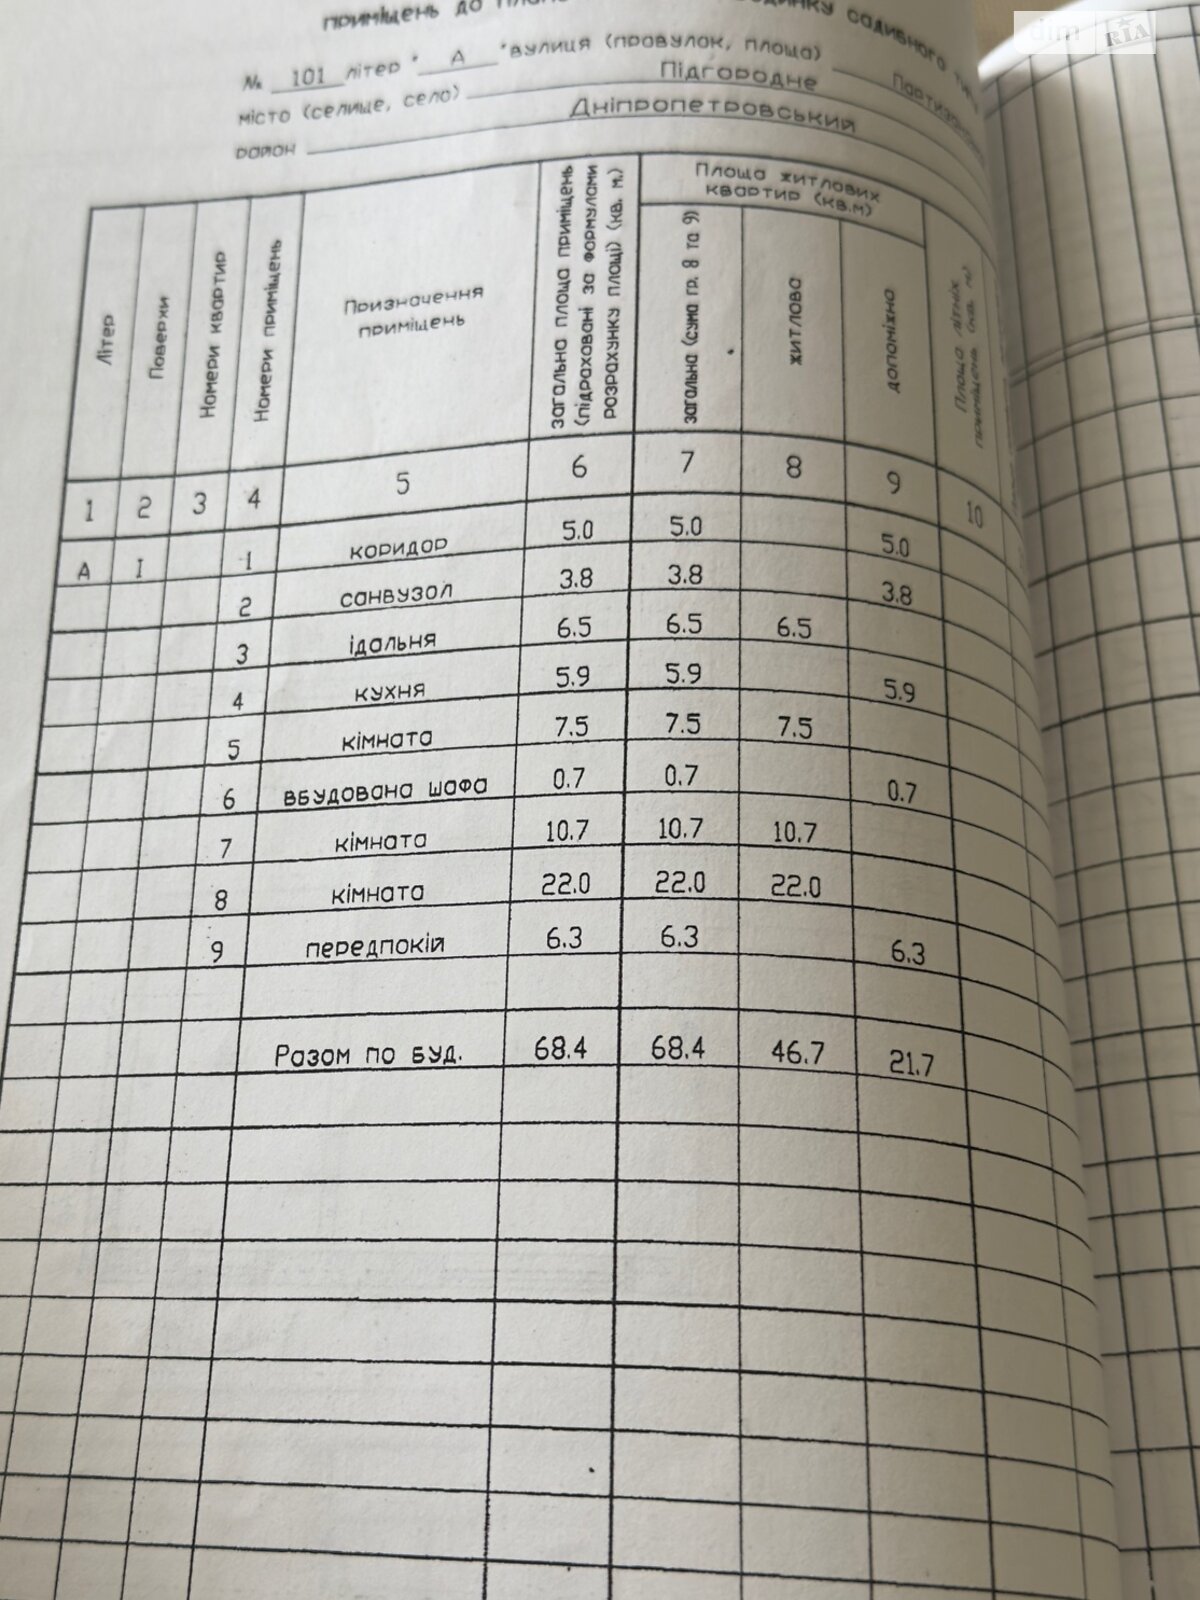 приміщень до
садибного
№ 101 літер " А " вулиця (провулок, площа)
місто (селище, село) Підгородне
район Дніпропетровський
Літер
Поверхи
Номери квартир
Номери приміщень
Призначення
приміщень
загальна площа приміщень
(підраховані за формулами
розрахунку площі) (кв. м.)
Площа житлових
квартир (кв.м)
загальна (сума гр. 8 та 9)
житлова
допоміжна
Площа літніх
приміщень (кв. м)
1 2 3 4 5 6 7 8 9 10
А І 1 коридор 5.0 5.0 5.0
2 санвузол 3.8 3.8 3.8
3 їдальня 6.5 6.5 6.5
4 кухня 5.9 5.9 5.9
5 кімната 7.5 7.5 7.5
6 вбудована шафа 0.7 0.7 0.7
7 кімната 10.7 10.7 10.7
8 кімната 22.0 22.0 22.0
9 передпокій 6.3 6.3 6.3
Разом по буд. 68.4 68.4 46.7 21.7
dim RIA